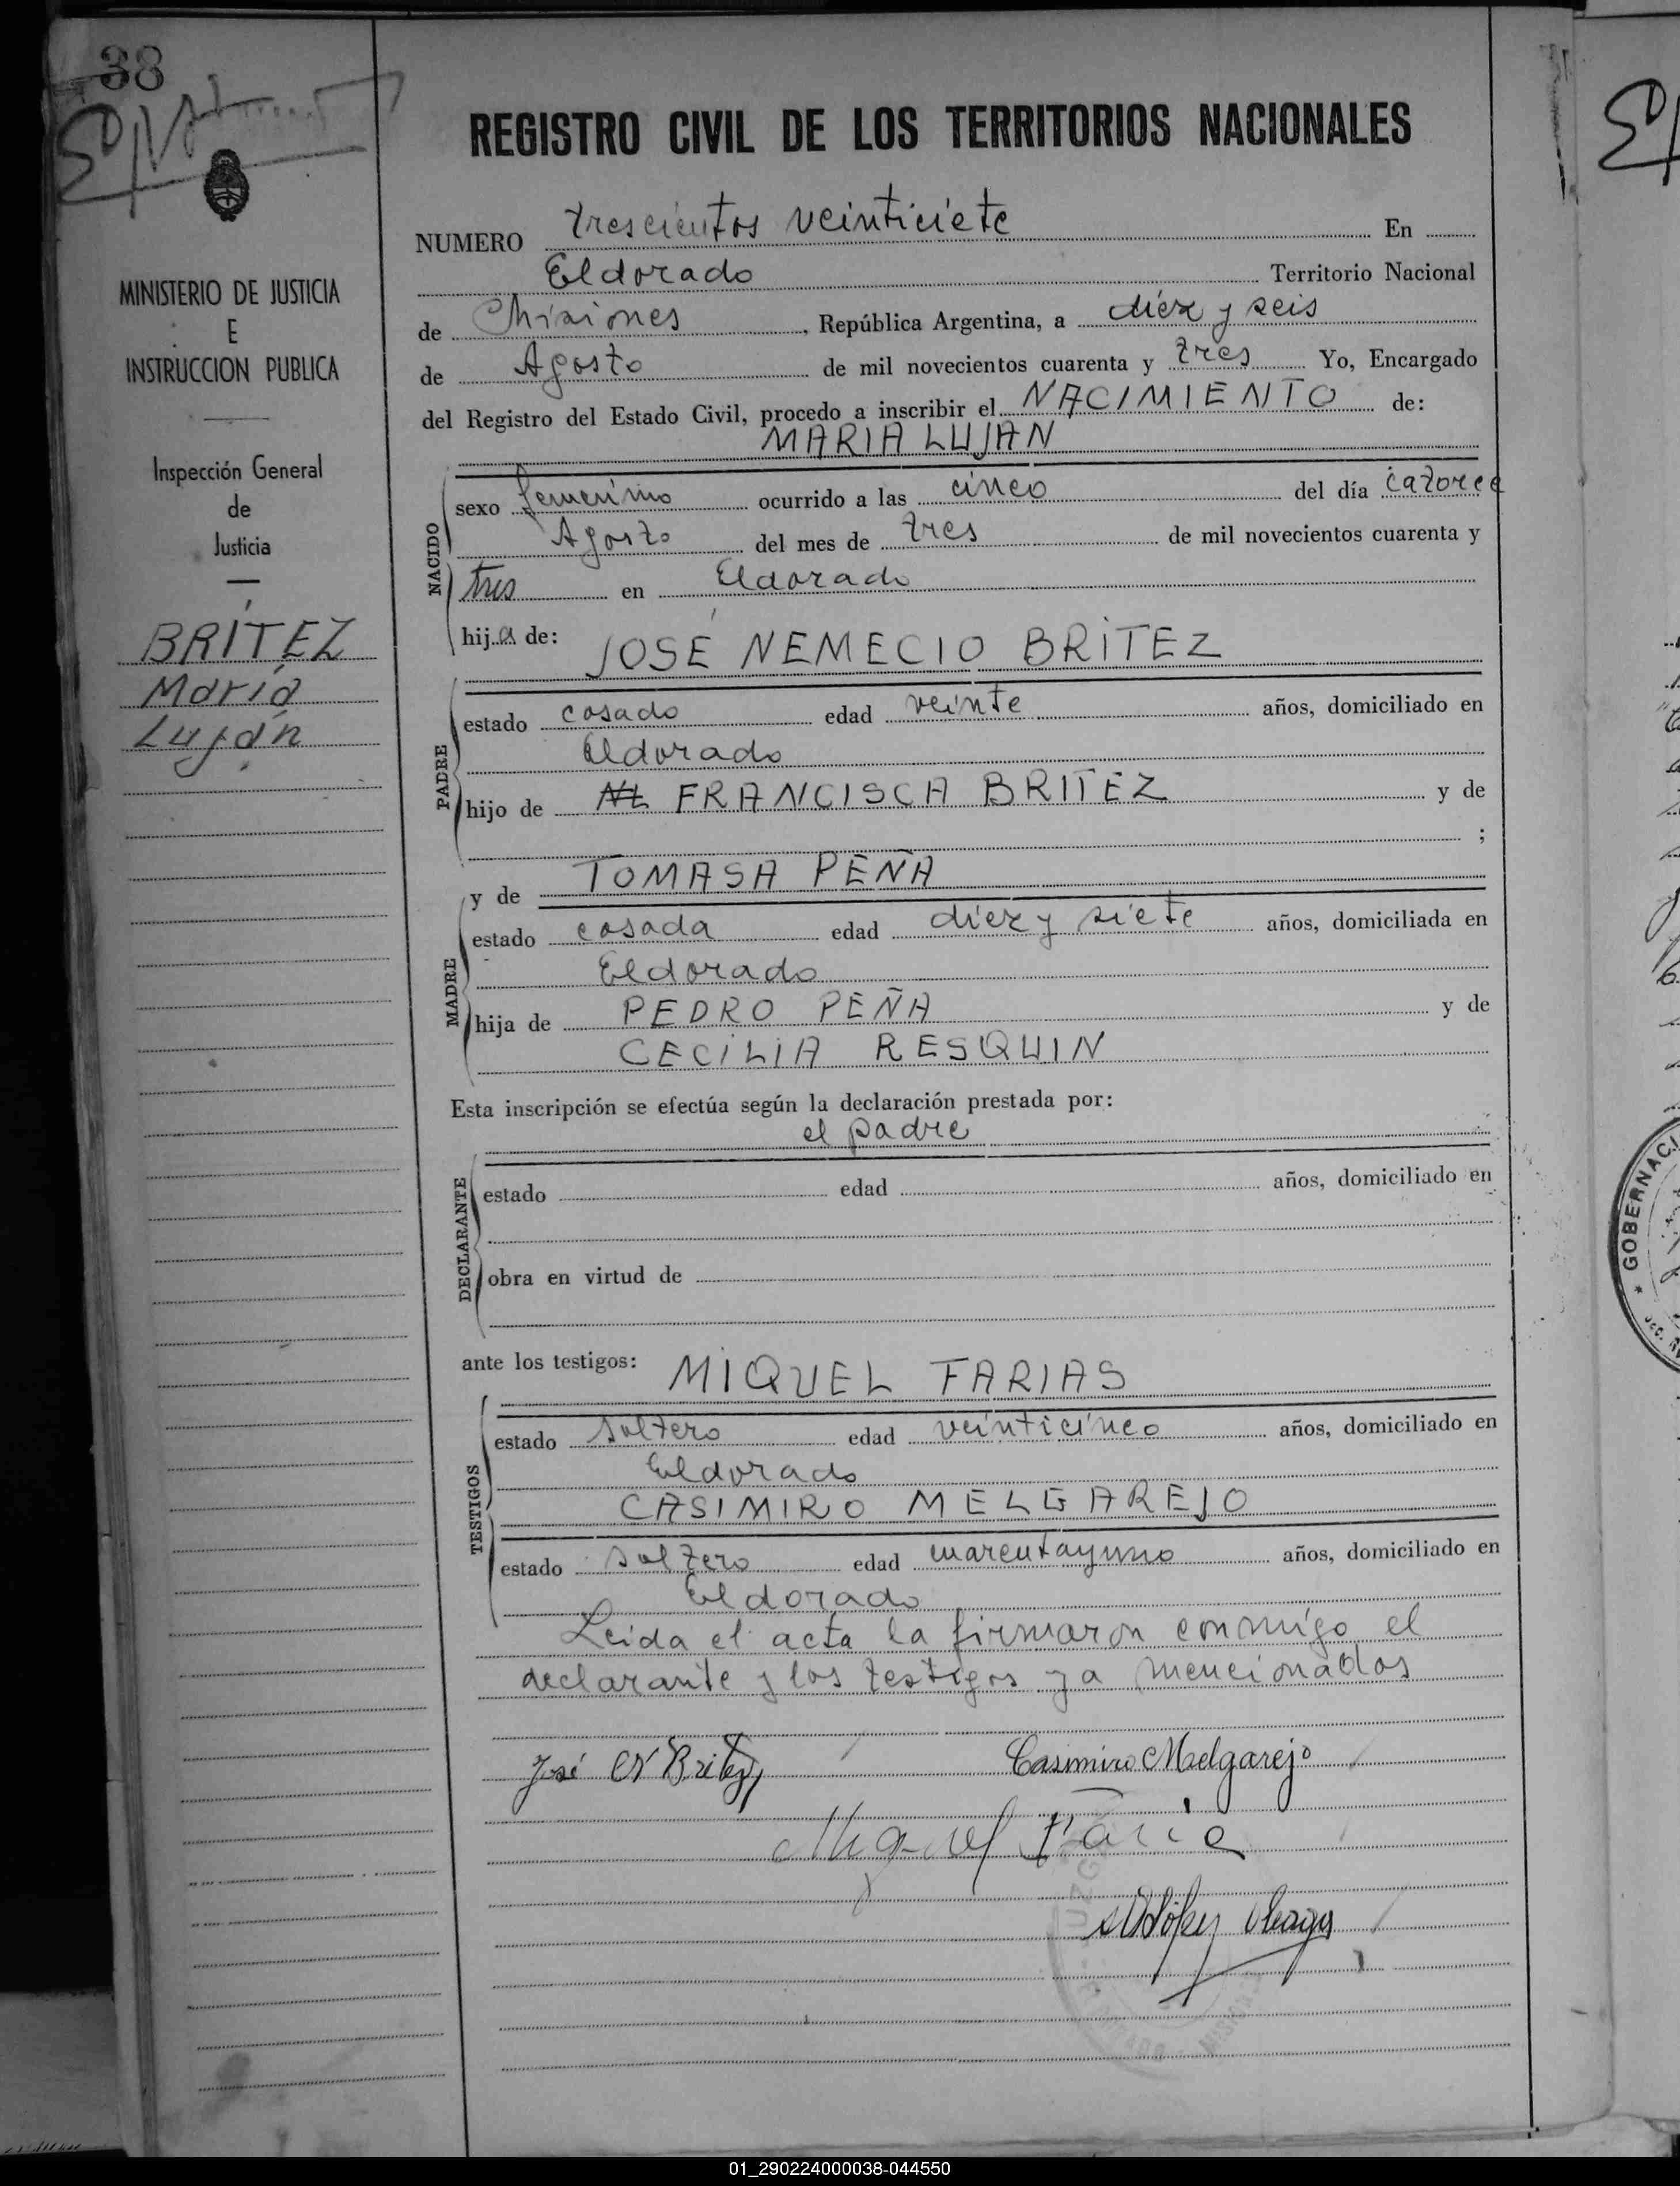 38
REGISTRO CIVIL DE LOS TERRITORIOS NACIONALES
MINISTERIO DE JUSTICIA
E
INSTRUCCION PUBLICA
Inspección General
de
Justicia
BRITEZ
María
Luján
NUMERO trescientos veinticiete En
Eldorado Territorio Nacional
de Misiones, República Argentina, a diez y seis
de Agosto de mil novecientos cuarenta y tres Yo, Encargado
del Registro del Estado Civil, procedo a inscribir el NACIMIENTO de:
MARIA LUJAN
NACIDO
sexo femenino ocurrido a las cinco del día catorce
Agosto del mes de tres de mil novecientos cuarenta y
tres en Eldorado
hija de: JOSÉ NEMECIO BRITEZ
PADRE
estado casado edad veinte años, domiciliado en
Eldorado
hijo de FRANCISCA BRITEZ y de
;
y de TOMASA PEÑA
MADRE
estado casada edad diez y siete años, domiciliada en
Eldorado
hija de PEDRO PEÑA y de
CECILIA RESQUIN
Esta inscripción se efectúa según la declaración prestada por:
el padre
DECLARANTE
estado edad años, domiciliado en
obra en virtud de
ante los testigos: MIQUEL FARIAS
TESTIGOS
estado soltero edad veinticinco años, domiciliado en
Eldorado
CASIMIRO MELGAREJO
estado soltero edad cuarentayuno años, domiciliado en
Eldorado
Leida el acta la firmaron conmigo el
declarante y los testigos ya mencionados
José N Britez Casimiro Melgarejo
Miguel Faria
GOBERNACI
01_290224000038-044550